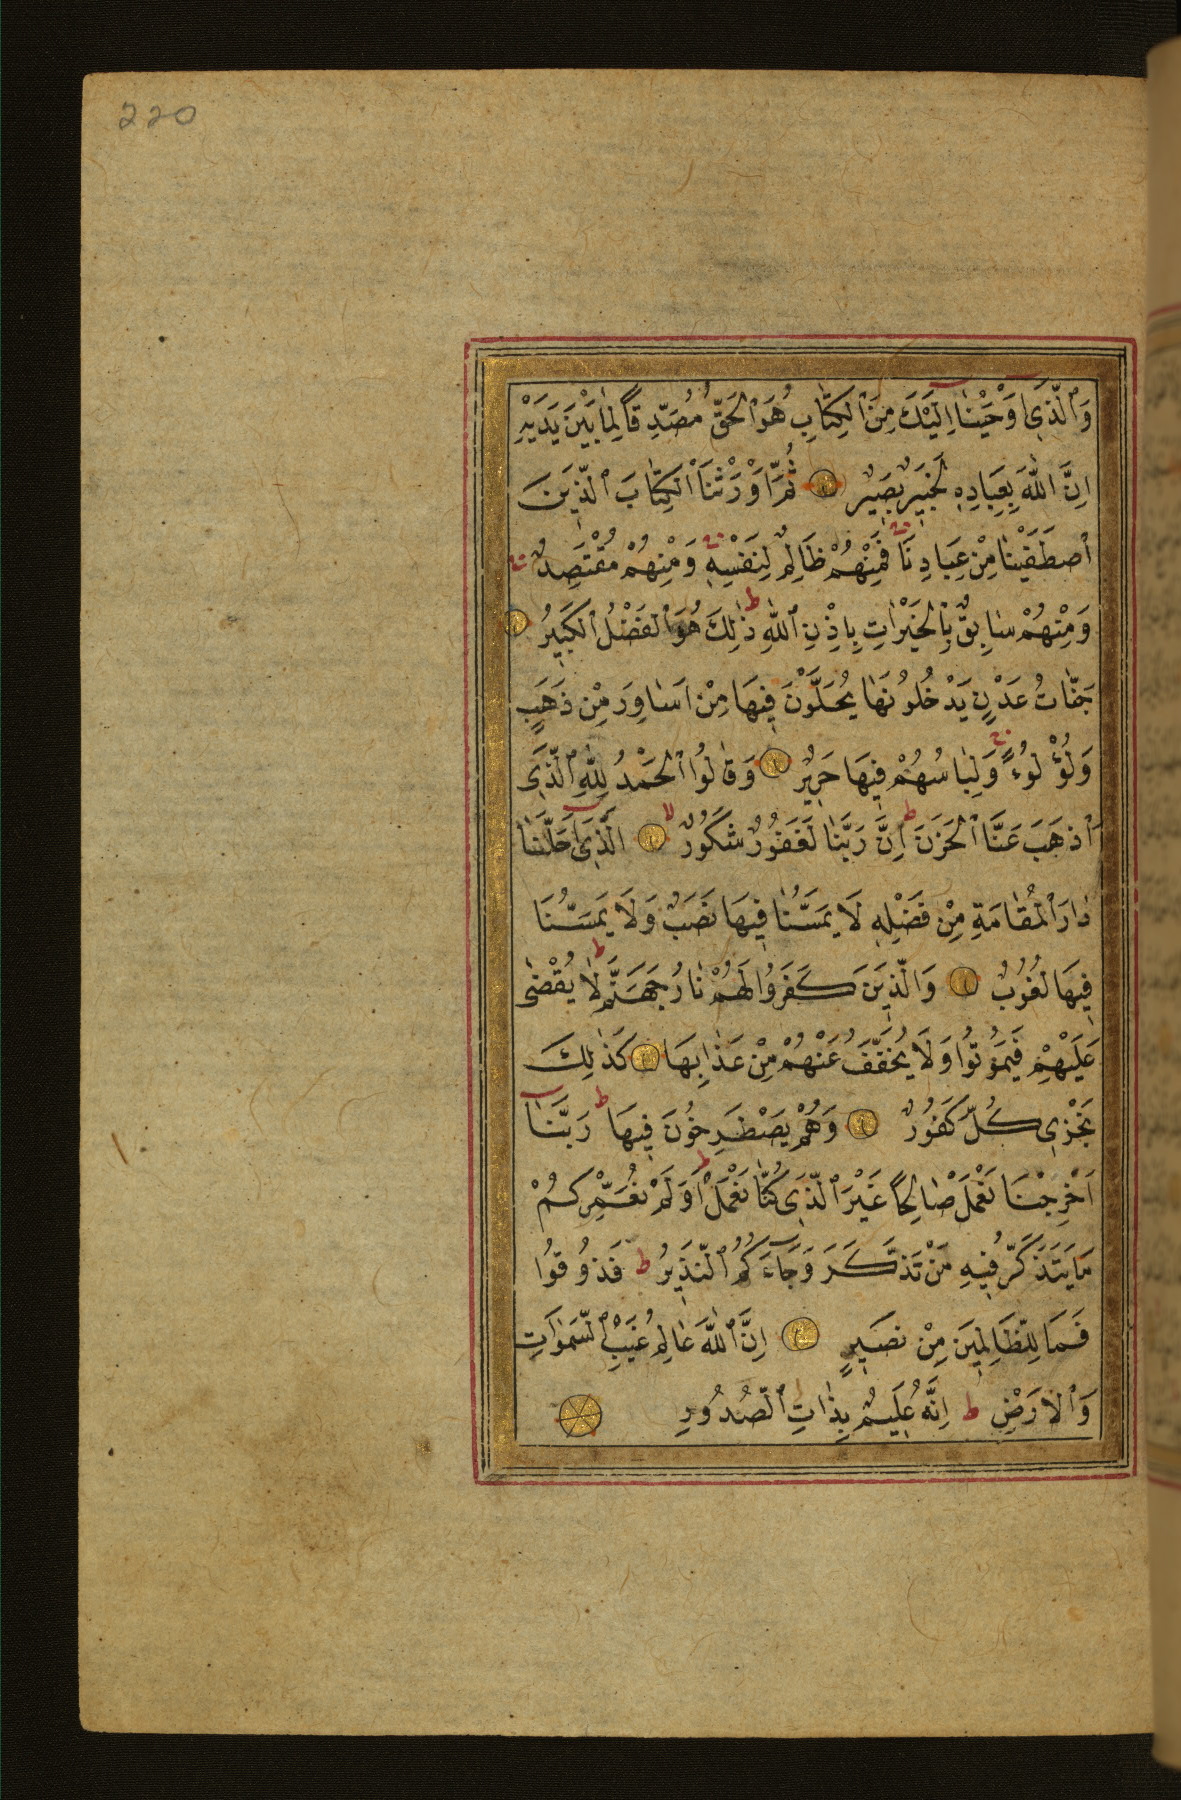 220
وَٱلَّذِٓى اَوْحَيْنَٓا اِلَيْكَ مِنَ ٱلْكِتَابِ هُوَ ٱلْحَقُّ مُصَدِّقًا لِمَا بَيْنَ يَدَيْهِ
اِنَّ ٱللّٰهَ بِعِبَادِهٖ لَخَبِيرٌ بَصِيرٌ ثُمَّ اَوْرَثْنَا ٱلْكِتَابَ ٱلَّذِينَ
ٱصْطَفَيْنَا مِنْ عِبَادِنَا فَمِنْهُمْ ظَالِمٌ لِنَفْسِهٖ وَمِنْهُمْ مُقْتَصِدٌ
وَمِنْهُمْ سَابِقٌ بِالْخَيْرَاتِ بِاِذْنِ ٱللّٰهِ ط ذٰلِكَ هُوَ ٱلْفَضْلُ ٱلْكَبِيرُ
جَنَّاتُ عَدْنٍ يَدْخُلُونَهَا يُحَلَّوْنَ فِيهَا مِنْ اَسَاوِرَ مِنْ ذَهَبٍ
وَلُؤْلُوءً وَلِبَاسُهُمْ فِيهَا حَرِيرٌ وَقَالُوا ٱلْحَمْدُ لِلّٰهِ ٱلَّذِٓى
اَذْهَبَ عَنَّا ٱلْحَزَنَ ط اِنَّ رَبَّنَا لَغَفُورٌ شَكُورٌ لا اَلَّذِٓى اَحَلَّنَا
دَارَ ٱلْمُقَامَةِ مِنْ فَضْلِهٖ لَا يَمَسُّنَا فِيهَا نَصَبٌ وَلَا يَمَسُّنَا
فِيهَا لُغُوبٌ وَالَّذِينَ كَفَرُوا لَهُمْ نَارُ جَهَنَّمَ ط لَا يُقْضٰى
عَلَيْهِمْ فَيَمُوتُوا وَلَا يُخَفَّفُ عَنْهُمْ مِنْ عَذَابِهَا كَذٰلِكَ
نَجْزِى كُلَّ كَفُورٌ وَهُمْ يَصْطَرِخُونَ فِيهَا ط رَبَّنَٓا
اَخْرِجْنَا نَعْمَلْ صَالِحًا غَيْرَ ٱلَّذِى كُنَّا نَعْمَلُ ط اَوَلَمْ نُعَمِّرْكُمْ
مَا يَتَذَكَّرُ فِيهِ مَنْ تَذَكَّرَ وَجَٓاءَكُمُ ٱلنَّذِيرُ ط فَذُوقُوا
فَمَا لِلظَّالِمِينَ مِنْ نَصِيرٍ اِنَّ ٱللّٰهَ عَالِمُ غَيْبِ ٱلسَّمٰوَاتِ
وَٱلْاَرْضِ ط اِنَّهُ عَلِيمٌ بِذَاتِ ٱلصُّدُورِ